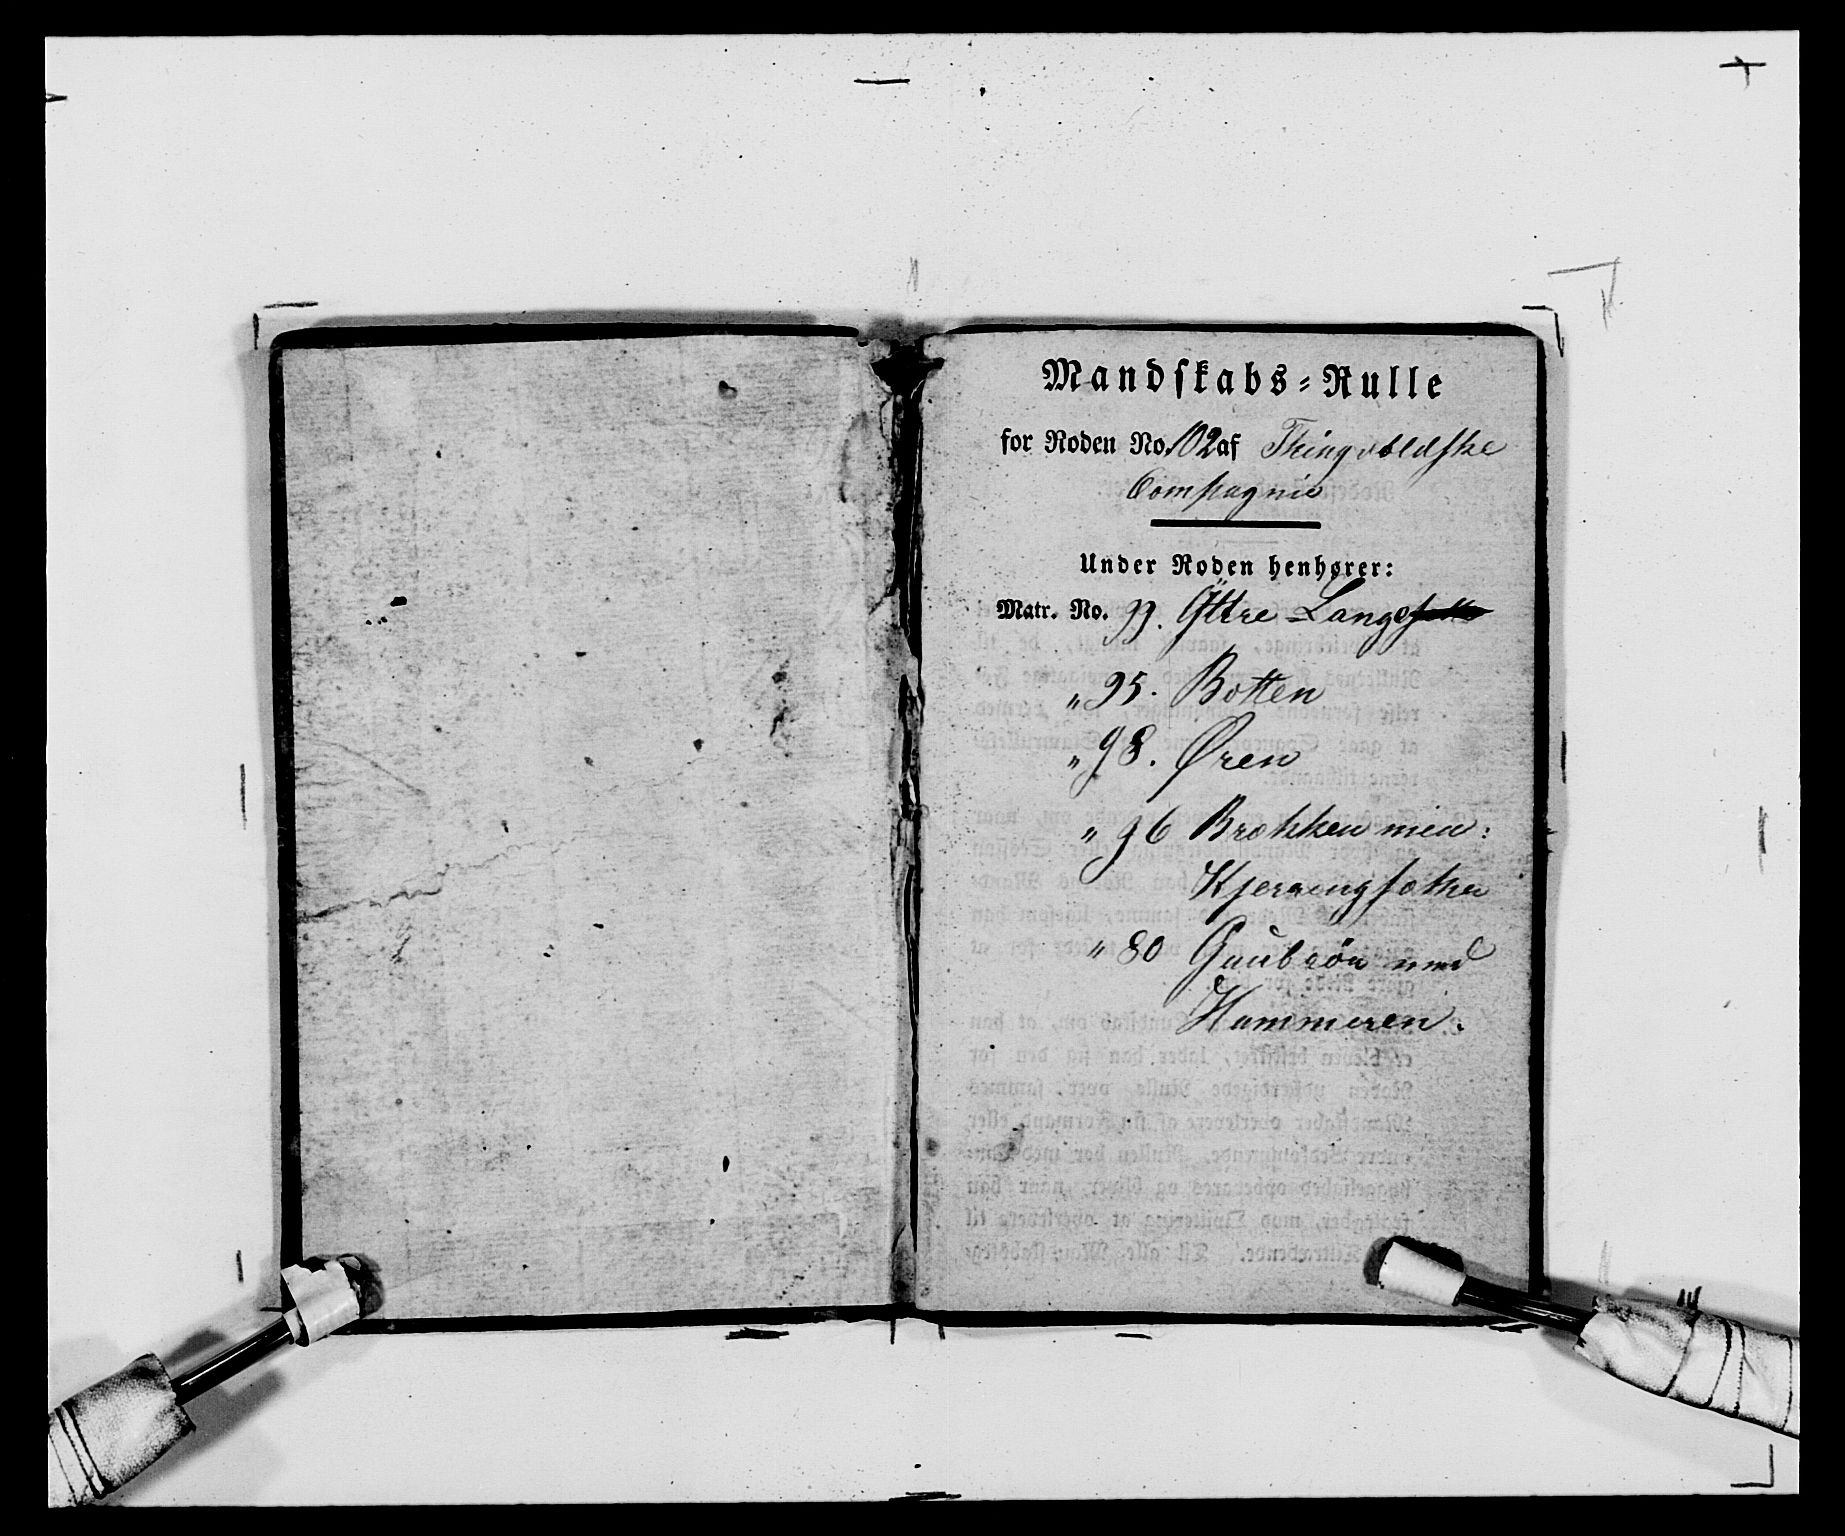 Mandskabs-Rulle
for Roden No. 102 af Thingvoldske
Compagnie
Under Roden henhører:
Matr. No. 99. Yttre-Lange
" 95. Botten
" 98. Øren
" 96 Brækken
Kjerringsæther
" 80 Gaubrön med
Hammeren.